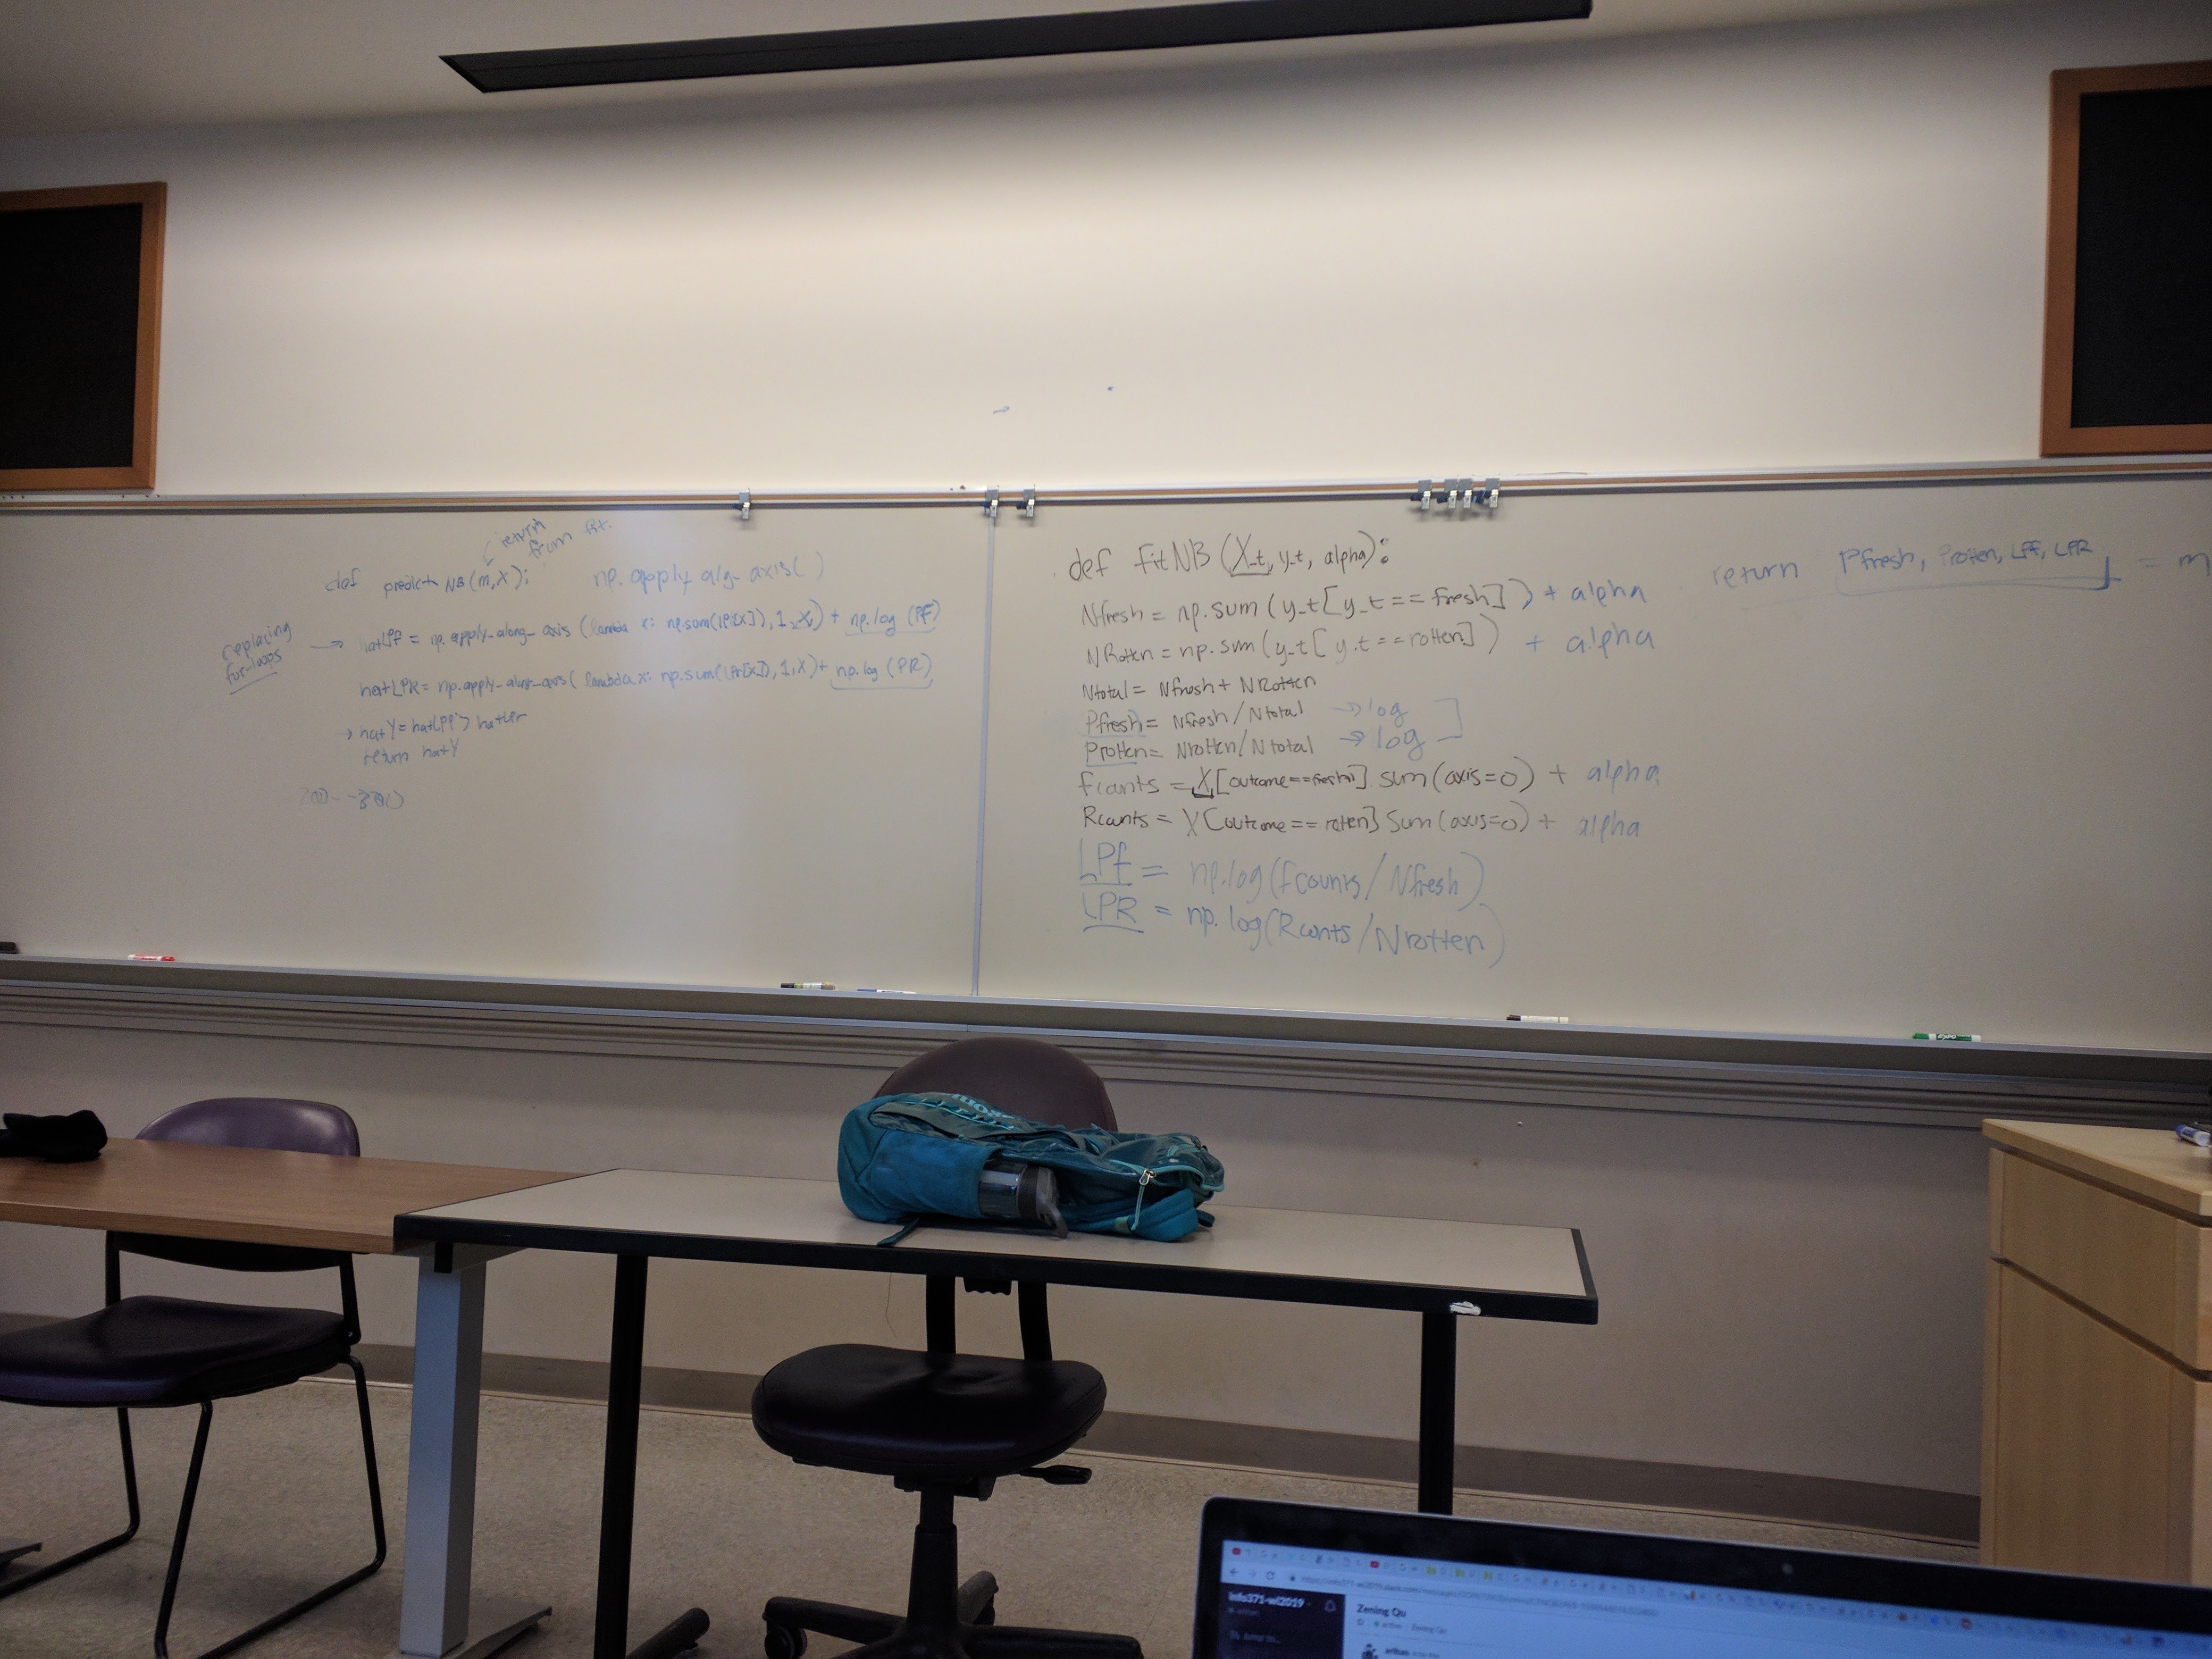 return
from fit.
def predict NB (m,X):
np.apply_alg_axis( )
replacing
for-loops
→ hatLPF = np.apply_along_axis (lambda x: np.sum(LPF[x]), 1, X) + np.log (PF)
hatLPR = np.apply_along_axis( lambda x: np.sum(LPR[x]), 1, X) + np.log (PR)
→ hat Y = hatLPF > hatLPr
return hatY
def fitNB (X_t, y_t, alpha):
Nfresh = np.sum (y_t[y_t == fresh]) + alpha
NRotten = np.sum (y_t[y_t == rotten]) + alpha
Ntotal = Nfresh + NRotten
Pfresh = Nfresh / Ntotal → log
Protten = Nrotten / Ntotal → log
fcounts = X[outcome==fresh] sum (axis=0) + alpha
Rcounts = X[outcome == rotten] sum (axis=0) + alpha
LPf = np.log(fcounts / Nfresh)
LPR = np.log(Rcounts / Nrotten)
return Pfresh, Protten, LPf, LPR = m
info371-wi2019
Jump to...
Zening Qu